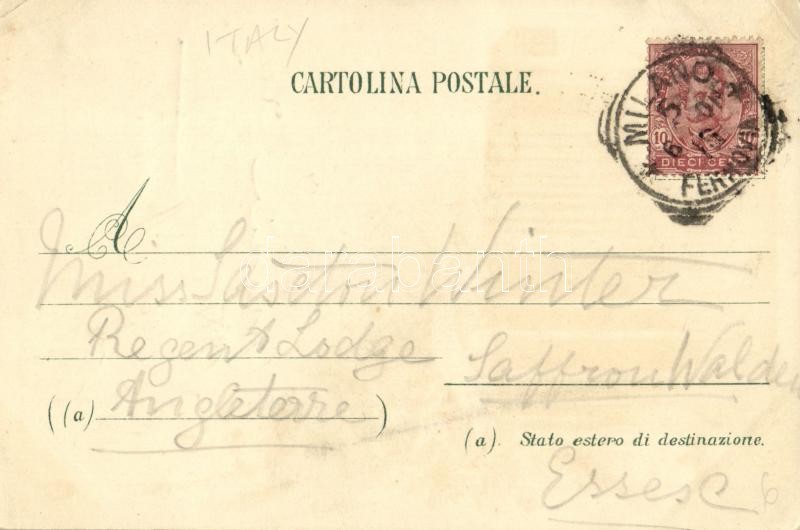 ITALY
CARTOLINA POSTALE.
MILANO
FERROVIA
10
DIECI CENT
A
Miss Winter
Regent Lodge
Saffron Walden
((a) Angleterre)
(a). Stato estero di destinazione.
Essex
6
darabanth